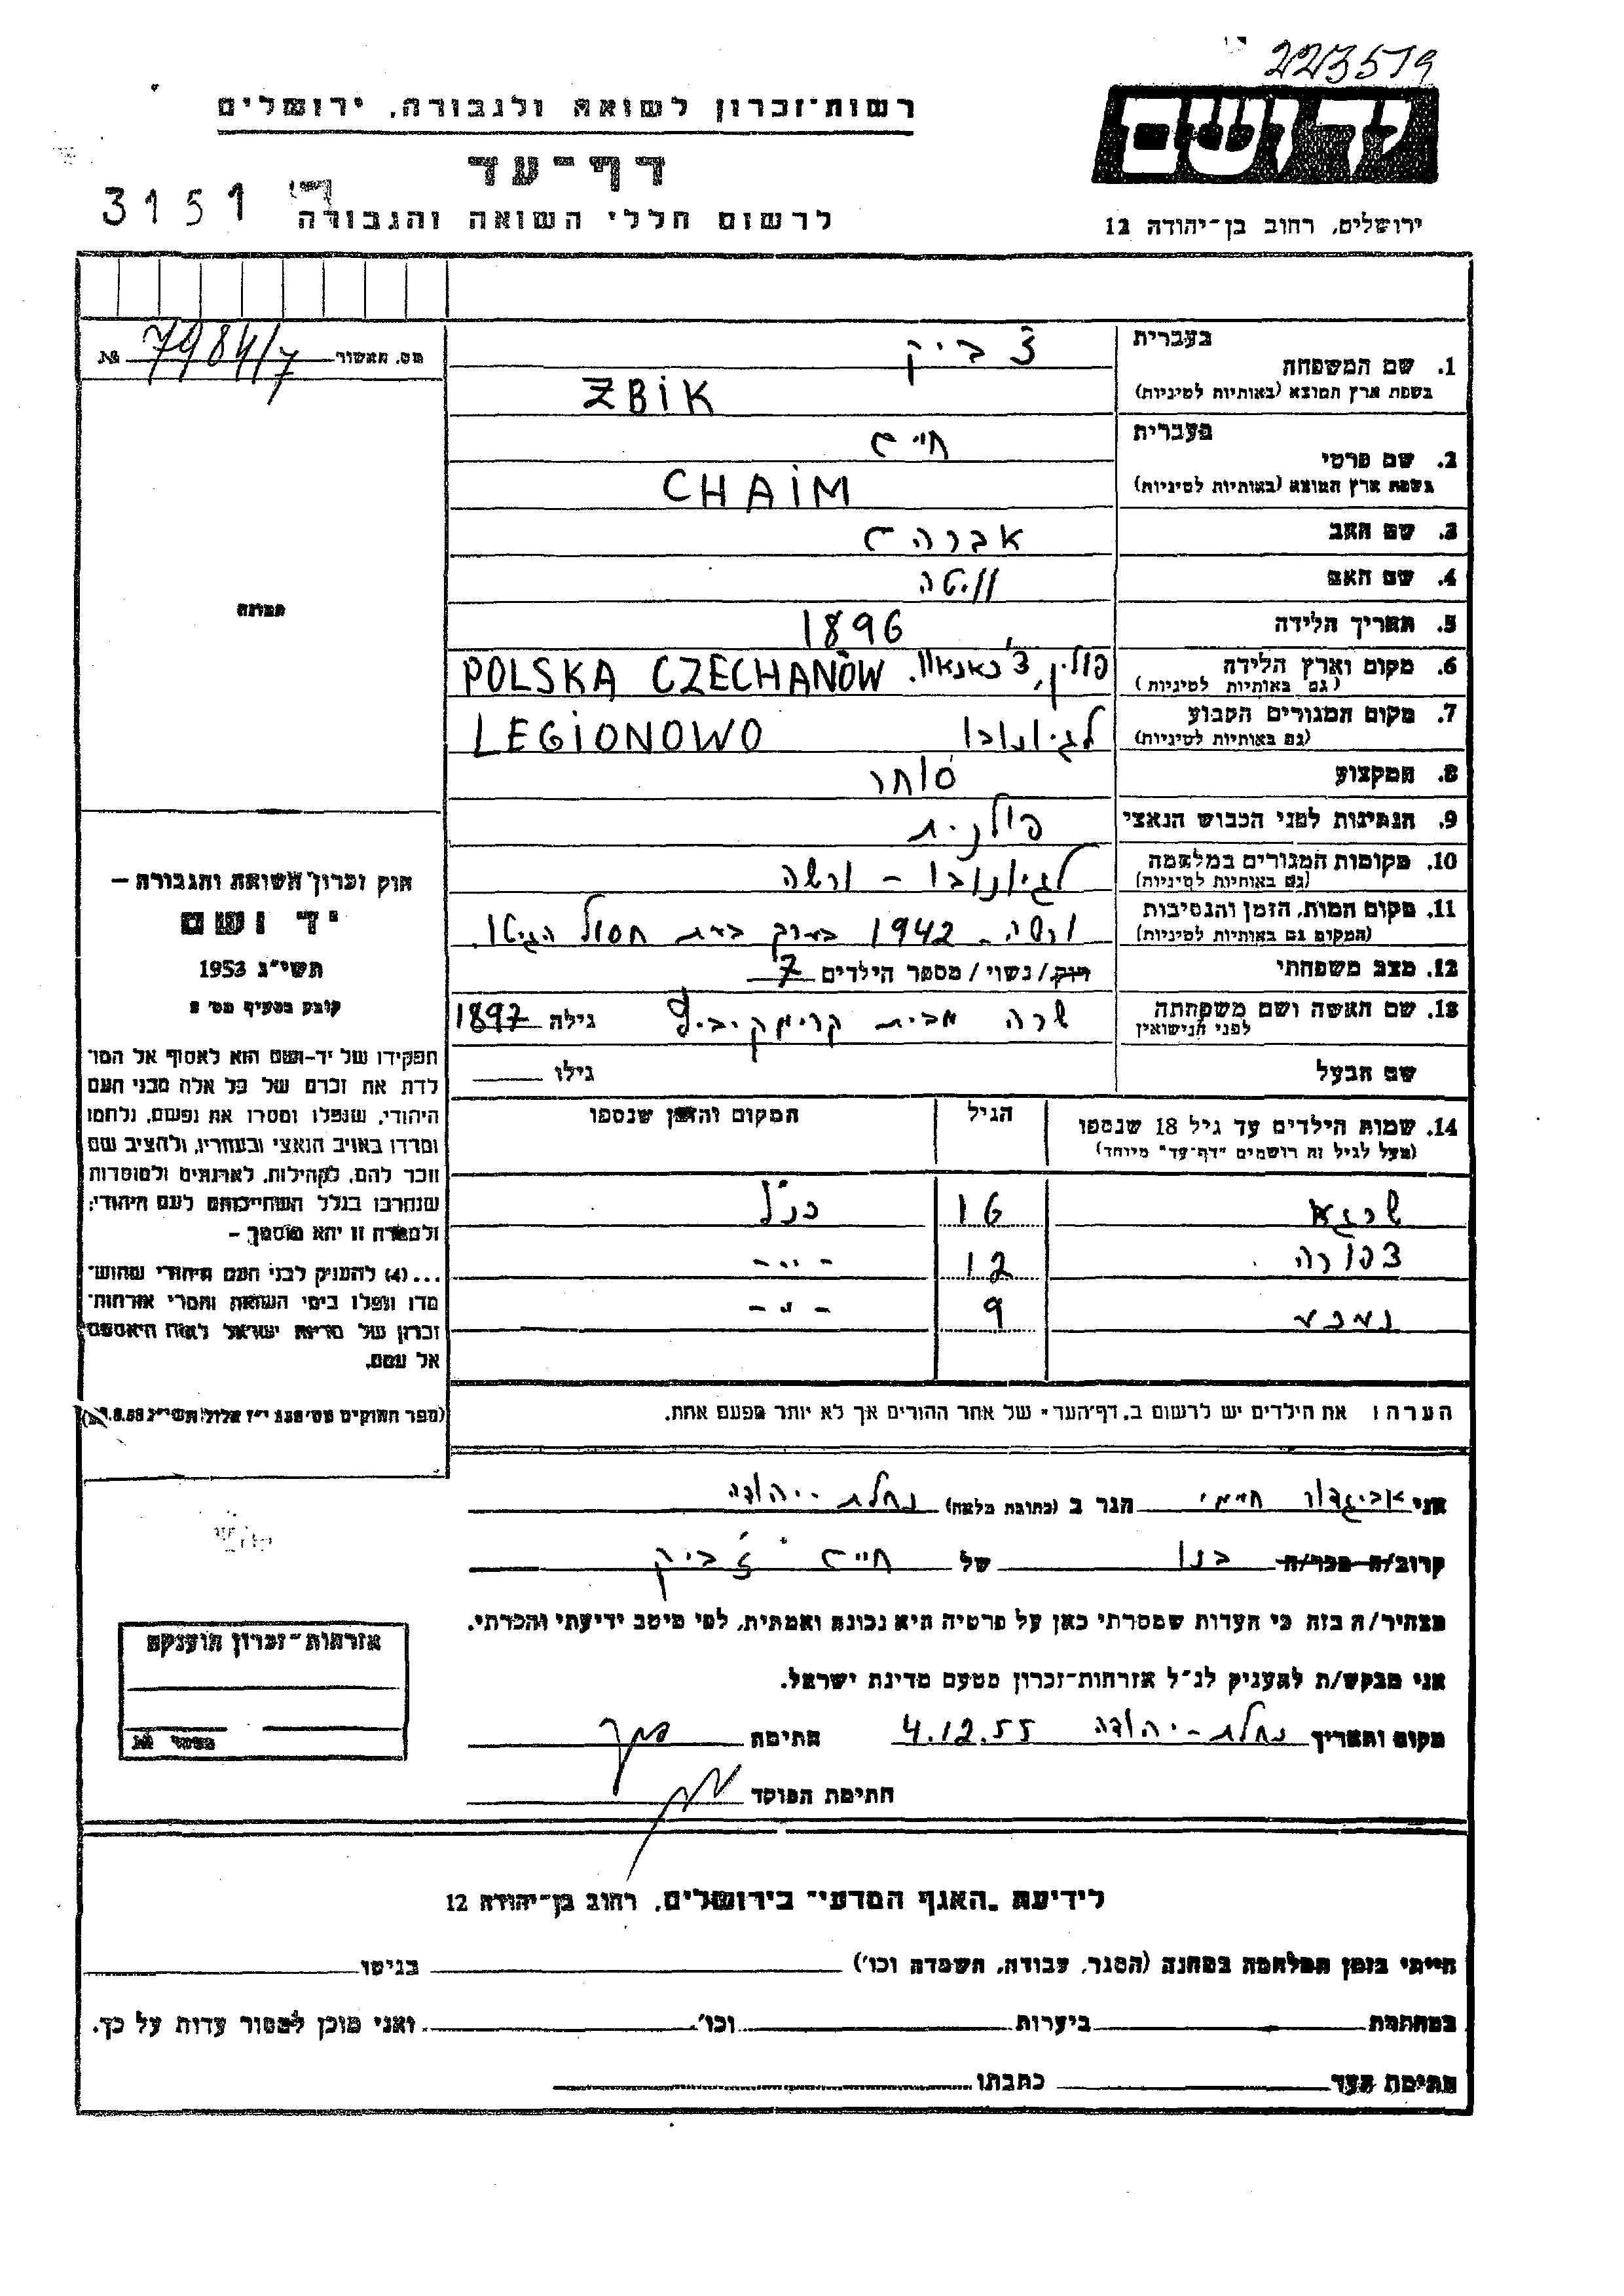 223519
רשות־זכרון לשואה ולגבורה, ירושלים
יד ושם
דף־עד
3151
לרשום חללי השואה והגבורה
ירושלים, רחוב בן־יהודה 12
בעברית
צ ביק
1. שם המשפחה
בשפת ארץ המוצא (באותיות לטיניות)
ZBIK
מס. האשור 7984/7 №
בעברית
2. שם פרטי
חיים
בשפת ארץ המוצא (באותיות לטיניות)
CHAIM
3. שם האב אברהם
4. שם האם
תמונה
5. תאריך הלידה 1896
6. מקום וארץ הלידה
(גם באותיות לטיניות)
פולין, צ'כאנאוו. POLSKA CZECHANÓW
7. מקום המגורים הקבוע
(גם באותיות לטיניות)
לגיונובו LEGIONOWO
8. המקצוע סוחר
9. הנתינות לפני הכבוש הנאצי פולנית
10. מקומות המגורים במלחמה
(גם באותיות לטיניות)
לגיונובו – ורשה
11. מקום המות, הזמן והנסיבות
(המקום גם באותיות לטיניות)
ורשה – 1942 בערך בעת חסול הגיטו.
12. מצב משפחתי רווק/נשוי/מספר הילדים 7
13. שם האשה ושם משפחתה
לפני הנישואין
שרה מבית גילה 1897
שם הבעל גילו
14. שמות הילדים עד גיל 18 שנספו
(מעל לגיל זה רושמים "דף־עד" מיוחד)
הגיל
המקום והזמן שנספו
שרגא 16 כנ"ל
צפורה 12 - " -
נחמע 9 - " -
הערה: את הילדים יש לרשום ב"דף־העד" של אחד ההורים אך לא יותר מפעם אחת.
חוק זכרון השואה והגבורה –
יד ושם
תשי"ג 1953
קובע בסעיף מס' 2
תפקידו של יד־ושם הוא לאסוף אל המו־
לדת את זכרם של כל אלה מבני העם
היהודי, שנפלו ומסרו את נפשם, נלחמו
ומרדו באויב הנאצי ובעוזריו, ולהציב שם
וזכר להם, לקהילות, לארגונים ולמוסדות
שנחרבו בגלל השתייכותם לעם היהודי;
ולמטרה זו יהא מוסמך –
...(4) להעניק לבני העם היהודי שהוש־
מדו ונפלו בימי השואה והמרי אזרחות־
זכרון של מדינת ישראל לאות היאספם
אל עמם.
(ספר החוקים מס' 132 י"ז אלול תשי"ג 28.8.53)
אני אביגדור חיימי הגר ב (כתובת מלאה) נחלת – יהודה
קרוב/ה מכר/ה בנו של חיים צביק
מצהיר/ה בזה כי העדות שמסרתי כאן על פרטיה היא נכונה ואמתית, לפי מיטב ידיעתי והכרתי.
אני מבקש/ת להעניק לנ"ל אזרחות־זכרון מטעם מדינת ישראל.
מקום ותאריך נחלת – יהודה 4.12.55 חתימה
חתימת הפוקד
אזרחות־זכרון הוענקה
מספר №
לידיעת "האגף המדעי" בירושלים, רחוב בן־יהודה 12
הייתי בזמן המלחמה במחנה (הסגר, עבודה, השמדה וכו') בגיטו
במחתרת ביערות וכו' ואני מוכן למסור עדות על כך.
חתימת העד כתבתו